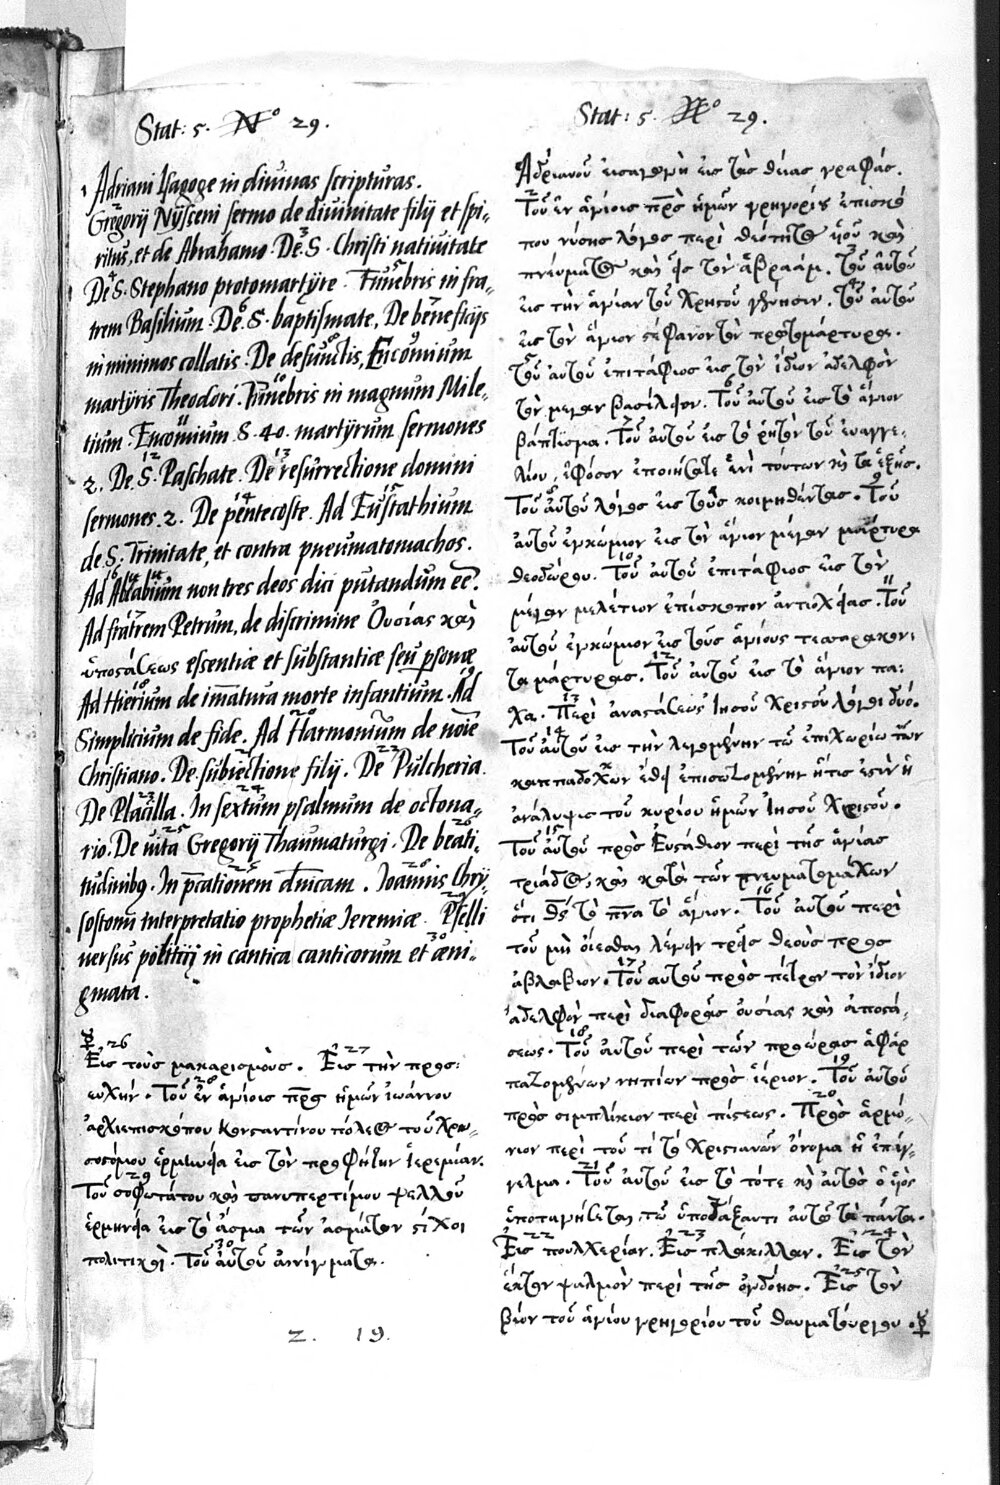 Stat: 5. N° 29.
1 Adriani Isagoge in diuinas scripturas.
2 Gregorij Nysseni sermo de diuinitate filij et spi-
ritus, et de Abrahamo. 3 De S. Christi natiuitate
4 De S. Stephano protomartyre. 5 Funebris in fra-
trem Basilium. 6 De S. baptismate, 7 De beneficijs
in minimos collatis. 8 De defunctis, 9 Encomium
martyris Theodori. 10 Funebris in magnum Mile-
tium. 11 Encomium S. 40. martyrum sermones
2. 12 De S. Paschate. 13 De resurrectione domini
sermones. 2. 14 De pentecoste. 15 Ad Eustathium
de S. Trinitate, et contra pneumatomachos.
16 Ad Ablabium non tres deos dici putandum eē.
17 Ad fratrem Petrum, de discrimine Οὐσίας καὶ
ὑποστάσεως essentiæ et substantiæ seu psonæ
18 Ad Hierium de im̄atura morte infantium. 19 Ad
Simplicium de fide. 20 Ad Harmonium de noīe
Christiano. 21 De subiectione filij. 22 De Pulcheria.
23 De Placilla. 24 In sextum psalmum de octona-
rio. 25 De uita Gregorij Thaumaturgi. 26 De beati-
tudinibq. In p̄cationem dn̄icam. 28 Ioannis Chry-
sostomi interpretatio prophetiæ Ieremiæ. 29 Pselli
uersus politicij in cantica canticorum et 30 æni-
gmata.
26 Εἰς τοὺς μακαρισμούς. 27 Εἰς τὴν προσ-
ευχήν. 28 Τοῦ ἐν ἁγίοις πρ̄ς ἡμῶν ἰωάννου
ἀρχιεπισκόπου κωνσαντίνου πόλεως τοῦ Χρυ-
σοστόμου ἑρμηνεία εἰς τὸν προφήτην ἱερεμίαν.
29 Τοῦ σοφωτάτου καὶ πανυπερτίμου ψελλοῦ
ἑρμηνεία εἰς τὸ ἆσμα τῶν ἀσμάτων στίχοι
πολιτικοὶ. 30 Τοῦ αὐτοῦ αἰνίγματα.
2. 19.
Stat: 5. N° 29.
Ἀδριανοῦ εἰσαγωγὴ εἰς τὰς θείας γραφάς.
2 Τοῦ ἐν ἁγίοις πρ̄ς ἡμῶν γρηγορίου ἐπισκό
που νύσης λόγος περὶ θεότητος υἱοῦ καὶ
πνεύματος καὶ εἰς τὸν ἀβραάμ. 3 Τοῦ αὐτοῦ
εἰς τὴν ἁγίαν τοῦ Χριστοῦ γέννησιν. 4 Τοῦ αὐτοῦ
εἰς τὸν ἅγιον στέφανον τὸν πρωτομάρτυρα.
5 Τοῦ αὐτοῦ ἐπιτάφιος εἰς τὸν ἴδιον ἀδελφὸν
τὸν μέγαν βασίλειον. 6 Τοῦ αὐτοῦ εἰς τὸ ἅγιον
βάπτισμα. 7 Τοῦ αὐτοῦ εἰς τὸ ῥητὸν τοῦ εὐαγγε-
λίου, ἐφόσον ἐποιήσατε ἑνὶ τούτων κὴ τα ἑξῆς.
8 Τοῦ αὐτοῦ λόγος εἰς τοὺς κοιμηθέντας. 9 Τοῦ
αὐτοῦ ἐγκώμιον εἰς τὸν ἅγιον μέγαν μάρτυρα
θεοδώρου. 10 Τοῦ αὐτοῦ ἐπιτάφιος εἰς τὸν
μέγαν μελέτιον ἐπίσκοπον ἀντιοχείας. 11 Τοῦ
αὐτοῦ ἐγκώμιον εἰς τοὺς ἁγίους τεσσαρακον-
τα μάρτυρας. 12 Τοῦ αὐτοῦ εἰς τὸ ἅγιον πα-
χα. 13 Περὶ ἀναστάσεως Ἰησοῦ Χριστοῦ λόγοι δύο.
14 Τοῦ αὐτοῦ εἰς τὴν λεγομένην τῷ ἐπιχωρίῳ τῶν
καππαδοκῶν ἔθει ἐπισωζομένην ἥτις ἐστὶν ἡ
ἀνάληψις τοῦ κυρίου ἡμῶν Ἰησοῦ Χριστοῦ.
15 Τοῦ αὐτοῦ πρὸς Εὐστάθιον περὶ τῆς ἁγίας
τριάδος, καὶ κατὰ τῶν πνευματομάχων
ὅτι θ̄ς τὸ πν̄α τὸ ἅγιον. 16 Τοῦ αὐτοῦ περὶ
τοῦ μὴ οἴεσθαι λέγειν τρεῖς θεοὺς πρὸς
ἀβλάβιον. 17 Τοῦ αὐτοῦ πρὸς πέτρον τὸν ἴδιον
ἀδελφὸν περὶ διαφορᾶς οὐσίας καὶ ὑποστά-
σεως. 18 Τοῦ αὐτοῦ περὶ τῶν πρὸ ὥρας ἀφαρ
παζομένων νηπίων πρὸς ἱέριον. 19 Τοῦ αὐτοῦ
πρὸς σιμπλίκιον περὶ πίστεως. 20 Πρὸς ἁρμό-
νιον περὶ τοῦ τί τὸ Χριστιανῶν ὄνομα ἢ ἐπάγ-
γελμα. 21 Τοῦ αὐτοῦ εἰς τὸ τότε κὴ αὐτὸς ὁ υἱὸς
ὑποταγήσεται τῷ ὑποτάξαντι αὐτῷ τὰ πάντα.
22 Εἰς πουλχερίαν. 23 Εἰς πλάκιλλαν. 24 Εἰς τὸν
ἕκτον ψαλμὸν περὶ τῆς ὀγδόης. 25 Εἰς τὸν
βίον τοῦ ἁγίου γρηγορίου τοῦ θαυματουργοῦ.